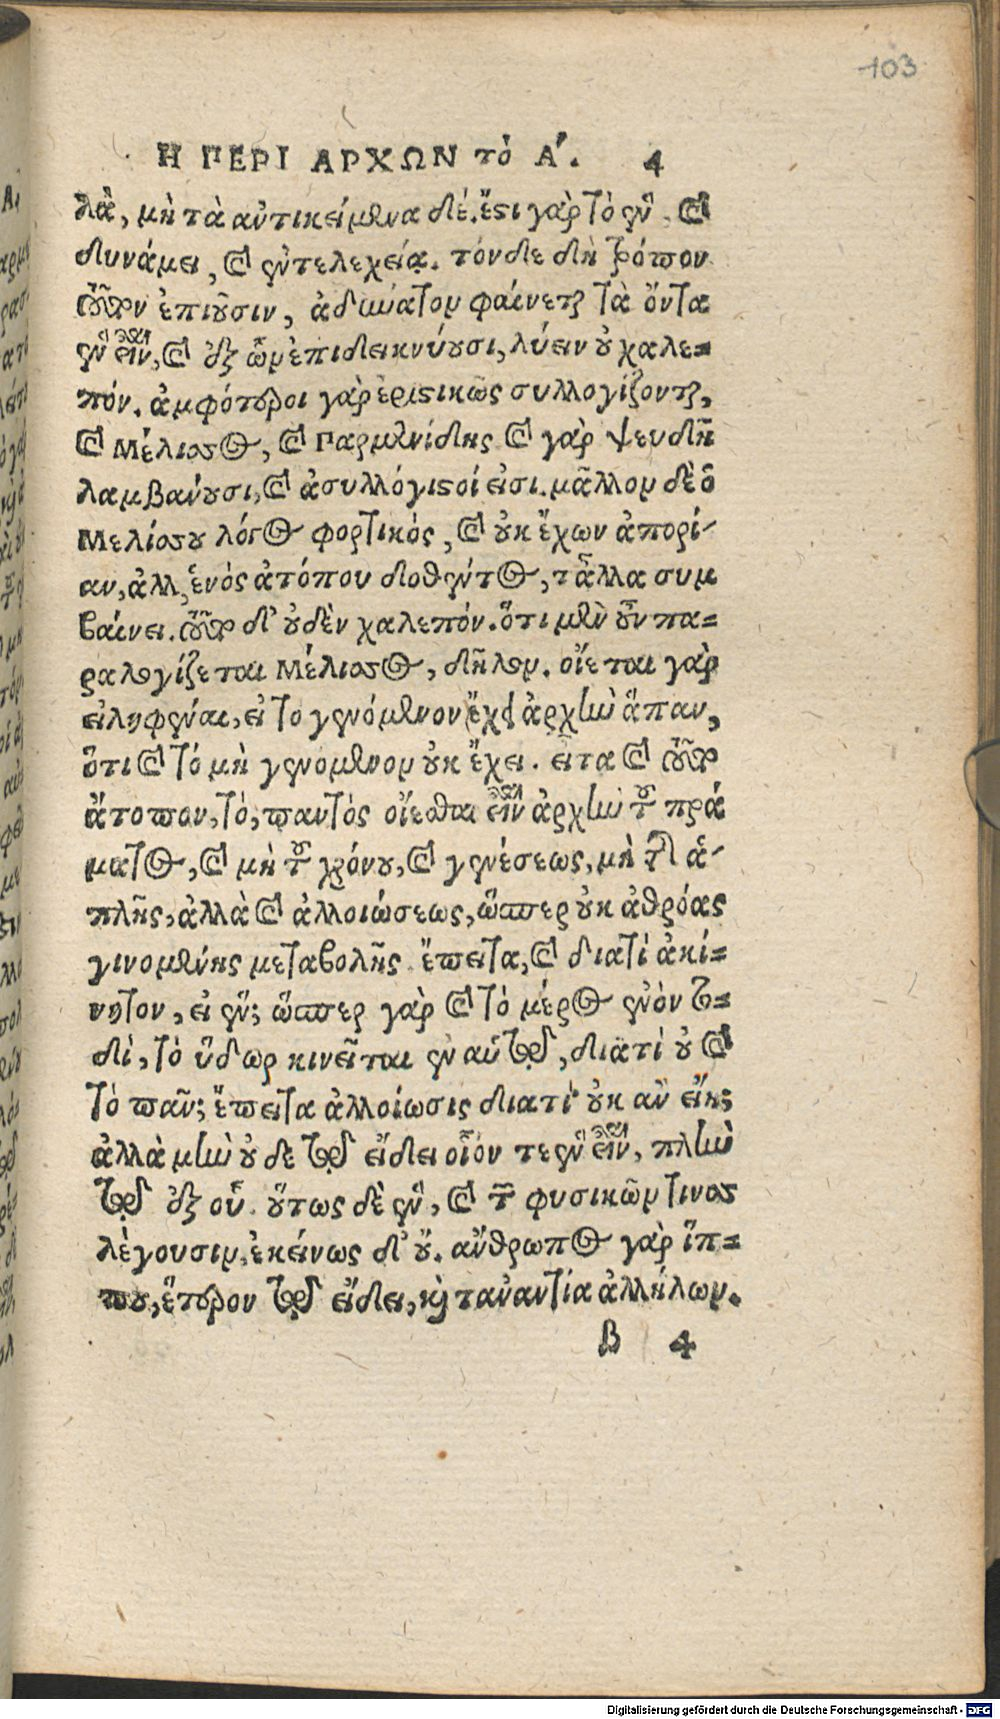 103
Η ΠΕΡΙ ΑΡΧΩΝ τὸ Α΄. 4
λὰ, μὴ τὰ αὐτικείμενα δέ. ἔστι γὰρ τὸ ἓν. καὶ
δυνάμει, καὶ ἐντελεχείᾳ. τόνδε δὴ τρόπον
οὖν ἐπιοῦσιν, ἀδύνατον φαίνεται τὰ ὄντα
ἓν εἶναι, καὶ ἐξ ὧν ἐπιδεικνύουσι, λύειν οὐ χαλε=
πόν. ἀμφότεροι γὰρ ἐριστικῶς συλλογίζονται,
καὶ Μέλισσος, καὶ Παρμενίδης καὶ γὰρ ψευδῆ
λαμβάνουσι, καὶ ἀσυλλόγιστοί εἰσι. μᾶλλον δὲ ὁ
Μελίσσου λόγος φορτικὸς, καὶ οὐκ ἔχων ἀπορί-
αν, ἀλλ, ἑνὸς ἀτόπου δοθέντος, τἆλλα συμ
βαίνει. τοῦτο δ' οὐδὲν χαλεπόν. ὅτι μὲν οὖν πα=
ραλογίζεται Μέλισσος, δῆλον. οἴεται γὰρ
εἰληφέναι, εἰ τὸ γενόμενον ἔχει ἀρχὴν ἅπαν,
ὅτι καὶ τό μὴ γενόμενον οὐκ ἔχει. εἶτα καὶ τοῦτο
ἄτοπον, τὸ, παντὸς οἴεσθαι εἶναι ἀρχὴν τοῦ πρά
ματος, καὶ μὴ τοῦ χρόνου, καὶ γενέσεως, μὴ τῆς ἁ-
πλῆς, ἀλλὰ καὶ ἀλλοιώσεως, ὥσπερ οὐκ ἀθρόας
γινομένης μεταβολῆς. ἔπειτα, καὶ διατί ἀκί=
νητον, εἰ ἕν; ὥσπερ γὰρ καὶ τὸ μέρος ἓν ὂν το=
δὶ, τὸ ὕδωρ κινεῖται ἐν αὑτῷ, διατί οὐ καὶ
τὸ πᾶν; ἔπειτα ἀλλοίωσις διατί οὐκ αν εἴη;
ἀλλὰ μὴν οὐδε τῷ εἴδει οἷόν τε ἓν εἶναι, πλὴν
τῷ ἐξ οὗ. οὕτως δὲ ἓν, καὶ τῶν φυσικῶν τινὲς
λέγουσιν, ἐκείνως δ' οὔ. ἄνθρωπος γὰρ ἵπ=
που, ἕτερον τῷ εἴδει, καὶ τἀναντία ἀλλήλων.
β 4
Digitalisierung gefördert durch die Deutsche Forschungsgemeinschaft - DFG